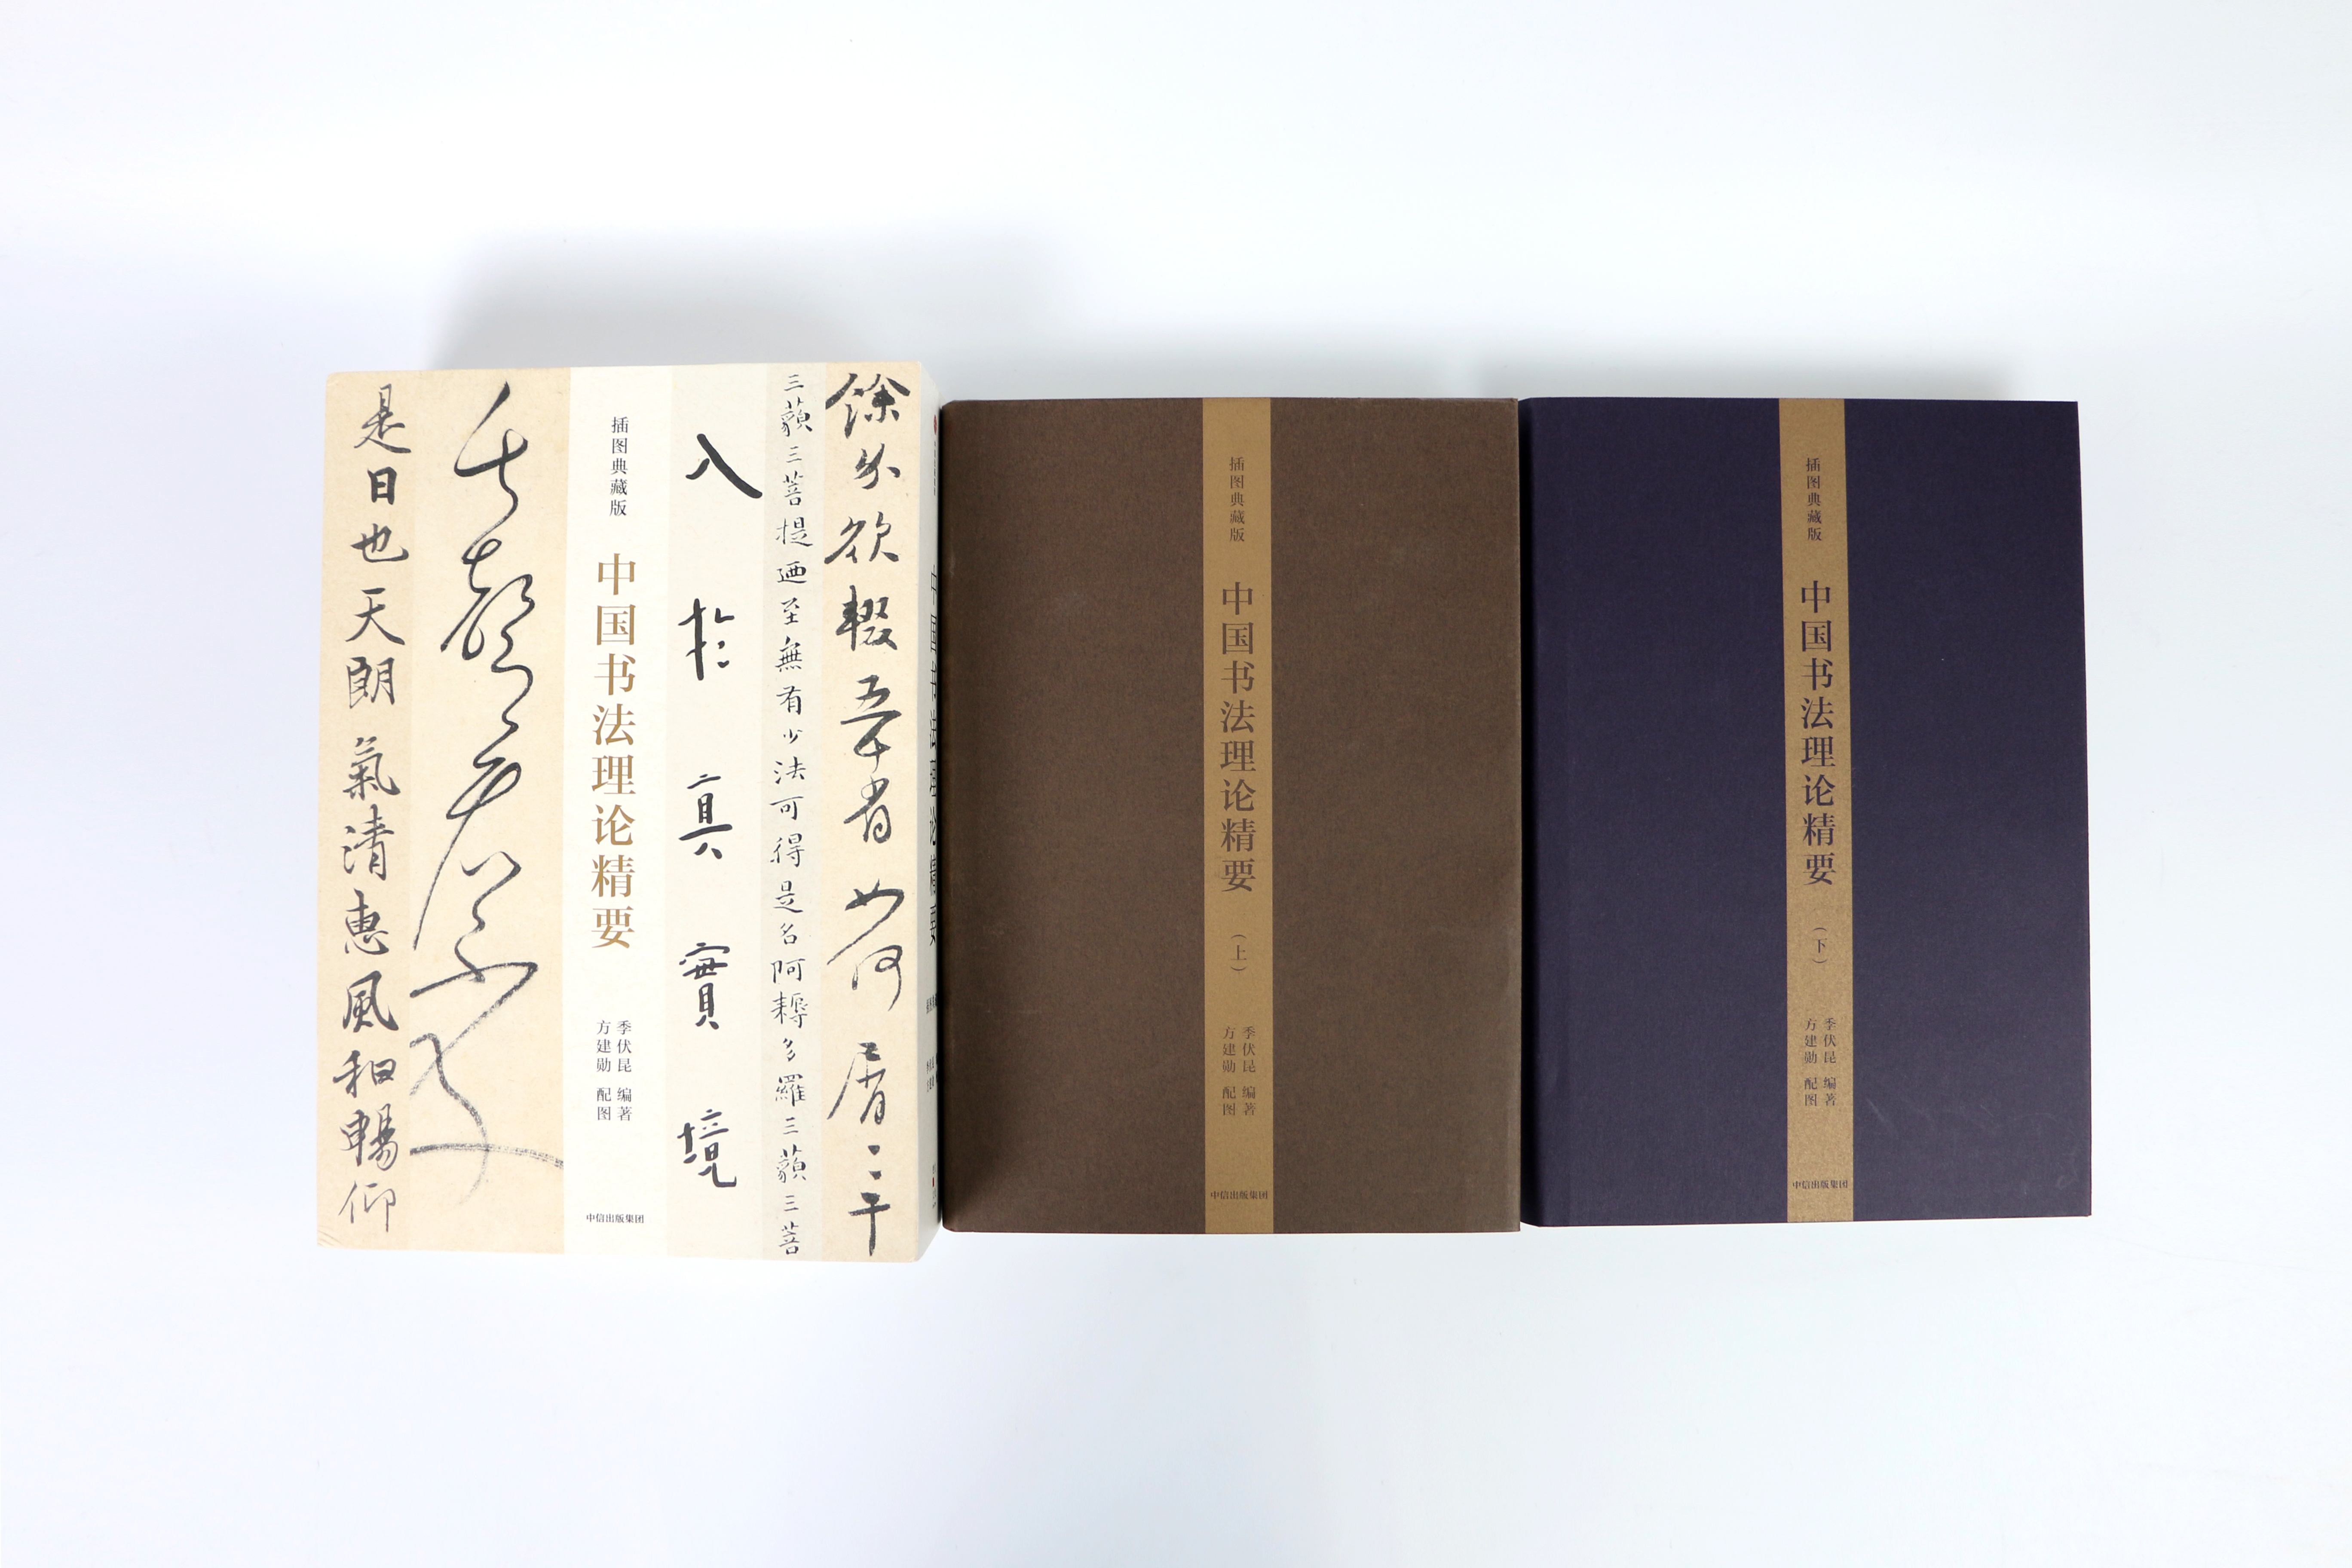 是日也天朗氣清惠風和暢仰
插图典藏版
中国书法理论精要
季伏昆 编著
方建勋 配图
中信出版集团
入於真實境
三藐三菩提迺至無有少法可得是名阿耨多羅三藐三菩
中国书法理论精要
插图典藏版
中国书法理论精要
（上）
季伏昆 编著
方建勋 配图
中信出版集团
插图典藏版
中国书法理论精要
（下）
季伏昆 编著
方建勋 配图
中信出版集团